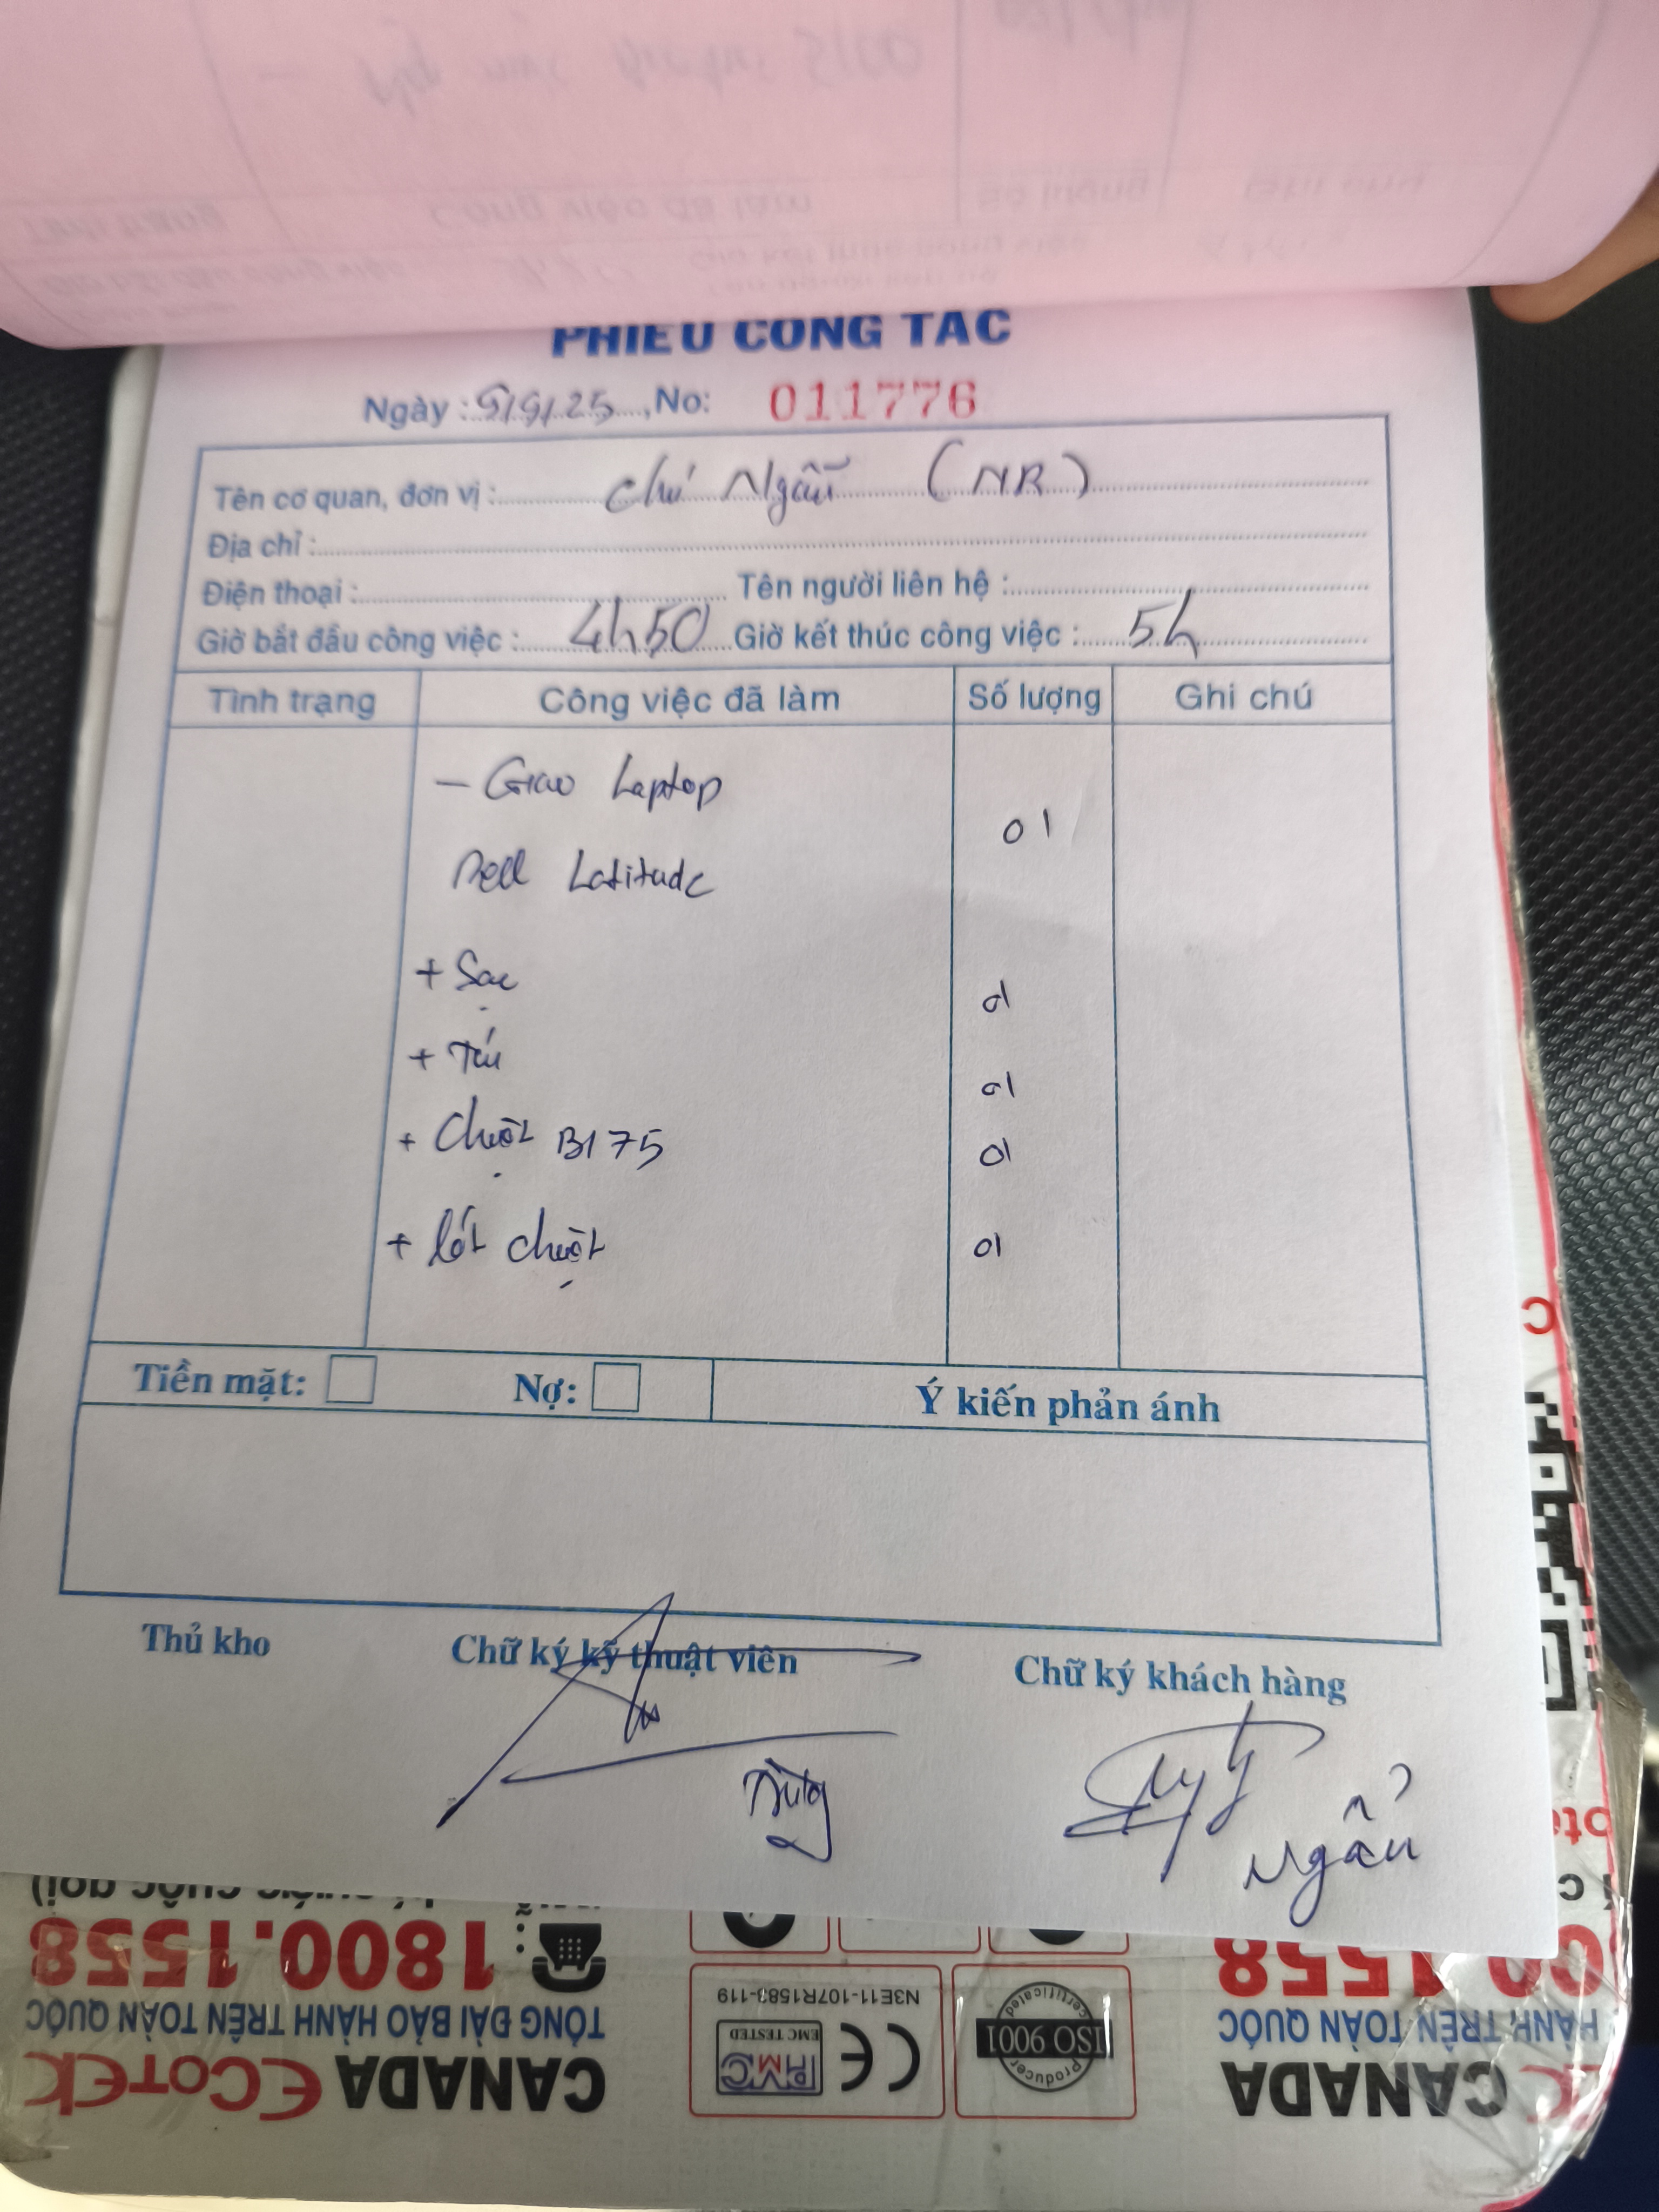 PHIẾU CÔNG TÁC
Ngày : 5/9/25, No: 011776
Tên cơ quan, đơn vị : Chú Ngẫu (NR)
Địa chỉ :
Điện thoại : Tên người liên hệ :
Giờ bắt đầu công việc : 4h50 Giờ kết thúc công việc : 5h
Tình trạng Công việc đã làm Số lượng Ghi chú
- Giao Laptop
Dell Latitude 01
+ Sạc 01
+ Túi 01
+ Chuột B175 01
+ lót chuột 01
Tiền mặt: Nợ: Ý kiến phản ánh
Thủ kho Chữ ký kỹ thuật viên Chữ ký khách hàng
1800.1558
TỔNG ĐÀI BẢO HÀNH TRÊN TOÀN QUỐC
CANADA ECOTEK
N3E11-107R1583-119
PMC
EMC TESTED
CE
Producer
ISO 9001
certificated
1558
HÀNH TRÊN TOÀN QUỐC
CANADA